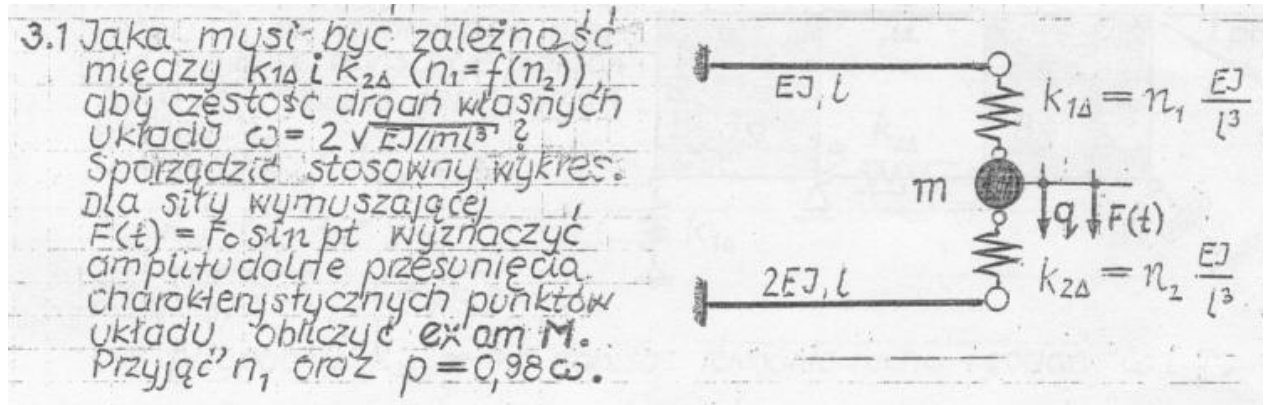 3.1 Jaka musi być zależność
między k₁Δ i k₂Δ (n₁=f(n₂)),
aby częstość drgań własnych
układu ω = 2√EJ/ml³ ?
Sporządzić stosowny wykres.
Dla siły wymuszającej
F(t) = F₀ sin pt wyznaczyć
amplitudalne przesunięcia
charakterystycznych punktów
układu, obliczyć ex am M.
Przyjąć n₁ oraz p = 0,98ω.
EJ, l
k₁Δ = n₁ EJ/l³
m
q F(t)
2EJ, l
k₂Δ = n₂ EJ/l³